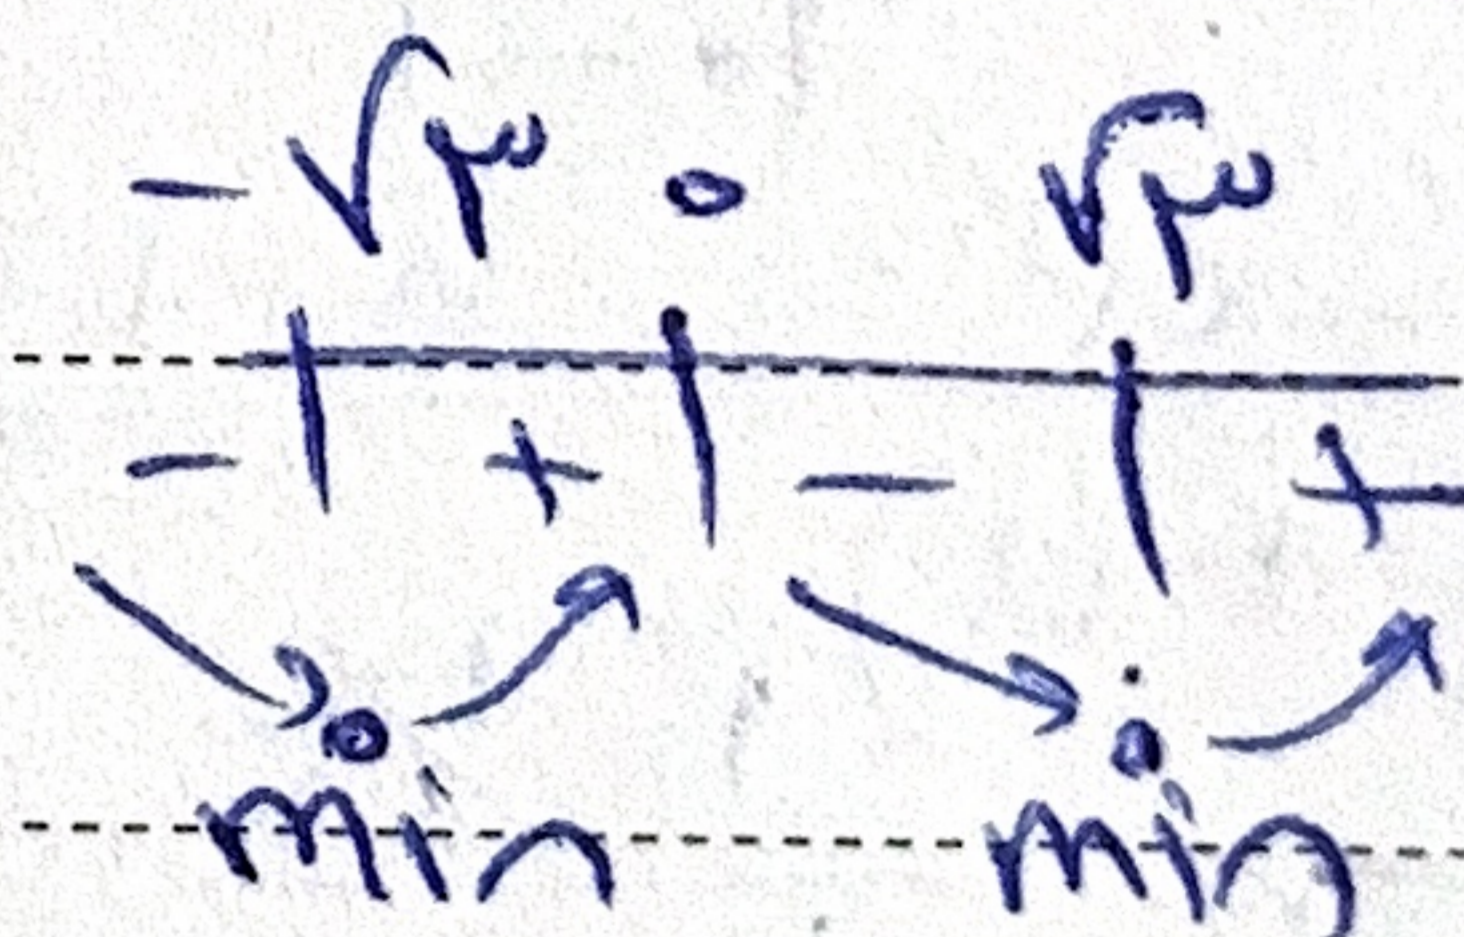 -√۳ ০ √۳
- | + | - | +
↘ ↗ ↘ ↗
min min